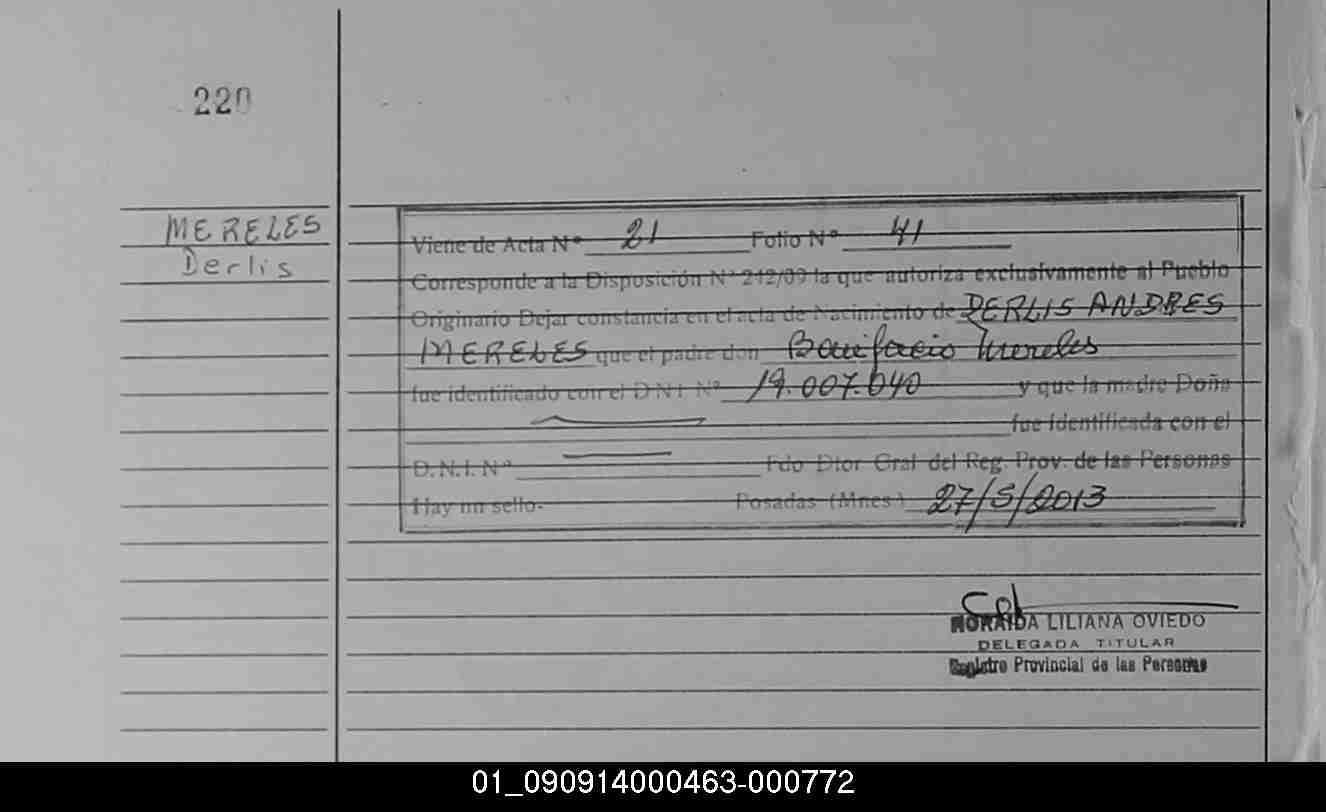 220
MERELES
Derlis
Viene de Acta Nº 21 Folio Nº 41
Corresponde a la Disposición Nº 242/09 la que autoriza exclusivamente al Pueblo
Originario Dejar constancia en el acta de Nacimiento de DERLIS ANDRES
MERELES que el padre don Bonifacio Mereles
fue identificado con el D.N.I. Nº 19.007.040 y que la madre Doña
fue identificada con el
D.N.I. Nº Fdo Dtor Gral del Reg. Prov. de las Personas
Hay un sello. Posadas (Mnes) 27/5/2013
NORAIDA LILIANA OVIEDO
DELEGADA TITULAR
Registro Provincial de las Personas
01_090914000463-000772